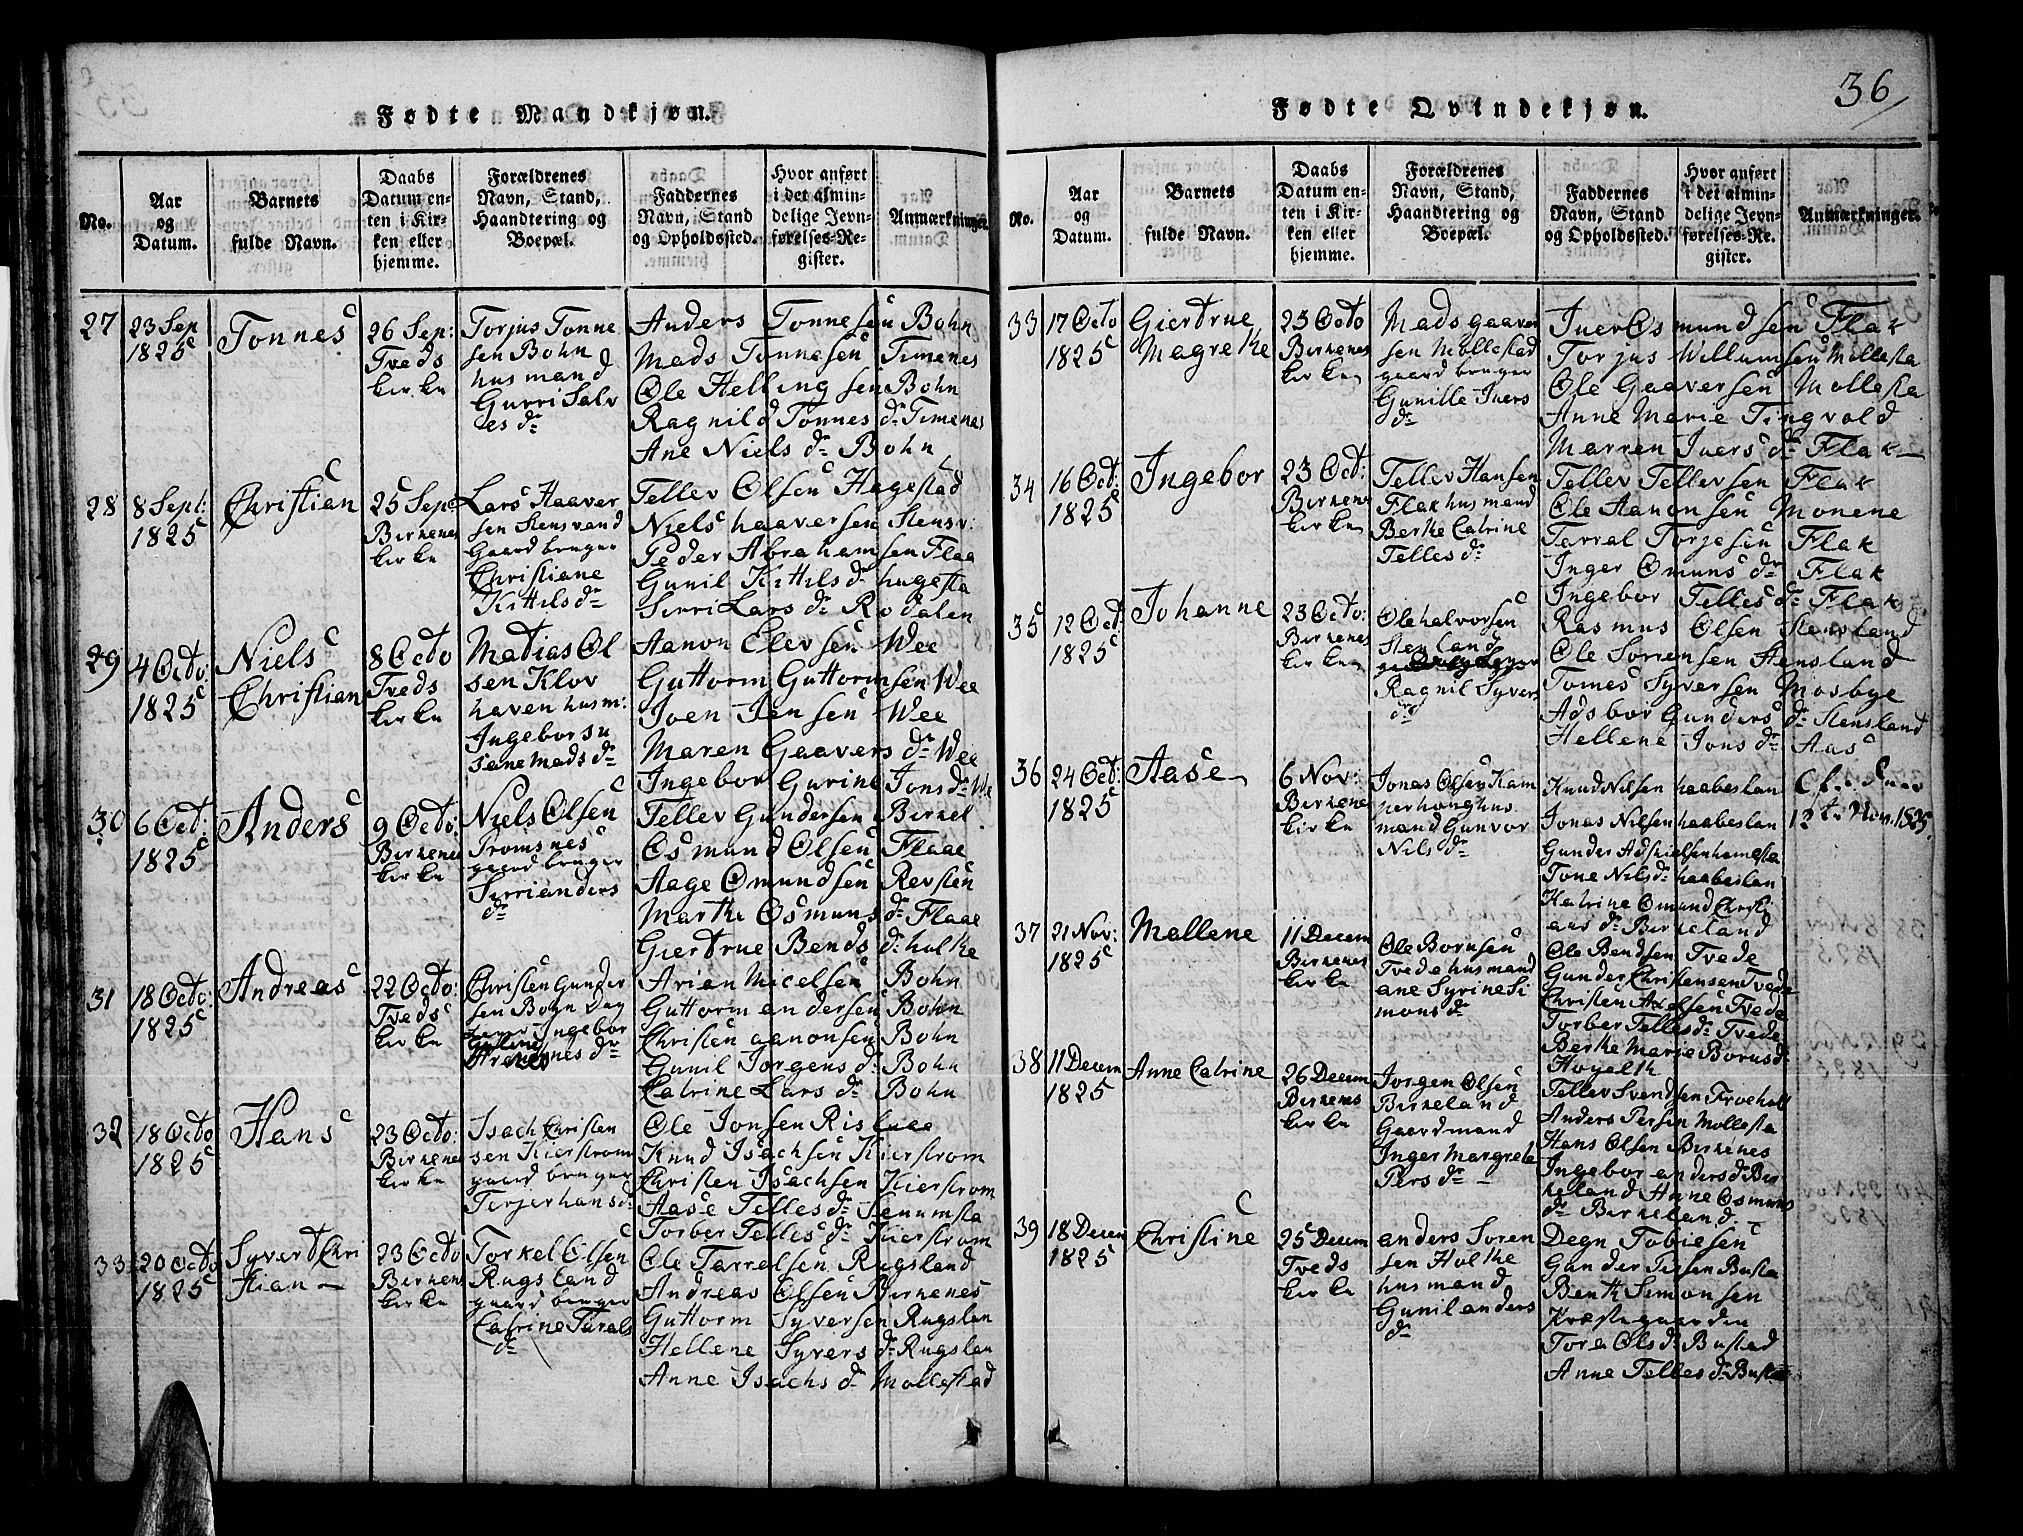 Fødte Mandkjøn.
No.
Aar
og
Datum.
Barnets
fulde Navn.
Daabs
Datum en-
ten i Kir-
ken eller
hjemme.
Forældrenes
Navn, Stand,
Haandtering og
Boepæl.
Faddernes
Navn, Stand
og Opholdssted.
Hvor anført
i det almin-
delige Jevn-
førelses-Re-
gister.
Anmærkninger.
27
23 Sep
1825
Tonnes
26 Sep:
Tveds
kirke
Torjus Tonne
sen Bohn
husmand
Gurri Salv
es dr
Anders Tonnesen Bohn
Mads Tonnesen Timenes
Ole Hellingsen Bohn
Ragnild Tonnes dr Timenes
Ane Niels dr Bohn
28
8 Sept:
1825
Christian
25 Sep:
Birkenes
kirke
Lars Haaver
sen Stensvand
Gaardbruger
Christiane
Kittils dr
Tellev Olsen Hagestad
Niels haaversen Stensv:
Peder Abrahamsen Flaa
Gunil Kittils dr hugesta
Sirri Lars dr Rodalen
29
4 Octo:
1825
Niels
Christian
8 Octo
Tveds
kirke
Matias Ol
sen Klov
haven husm:
Ingebor su
sane Mads dr
Aanon Elevsen Wee
Guttorm Guttormsen Wee
Joen Jensen Wee
Maren Gaavers dr Wee
Ingebor Gurine Jons dr We
30
6 Oct:
1825
Anders
9 Octo:
Birkenes
kirke
Niels Olsen
Tromsnes
gaardbruger
Sirri anders
dr
Tellev Gundersen Birkel
Osmund Olsen Flaae
Aage Omundsen Revsten
Marthe Osmuns dr Flaae
Giertrue Bends dr holthe
31
18 Octo:
1825
Andreas
22 Octo:
Tveds
kirke
Christen Gunder
sen Bohn Dag
Ingebor
dr
Arien Micelsen Bohn
Guttorm andersen Bohn
Christen aanonsen Bohn
Gunil Jorgens dr Bohn
Catrine Lars dr Bohn
32
18 Octo
1825
Hans
23 Octo:
Birkenes
kirke
Isach Christen
sen Kierstrom
gaardbruger
Terjer hans dr
Ole Jonsen Rislaae
Knud Isachsen Kierstrom
Christen Isachsen Kierstrom
Aase Telles dr Senumsta
Torber Telles dr Kierstrom
33
20 Octo
1825
Syvert Chri
stian
23 Octo
Birkenes
kirke
Torkel Olsen
Rugsland
gaardbruger
Catrine Tarals
dr
Ole Tarrelsen Rugsland
Andreas Olsen Birkenes
Guttorm Syversen Rugslan
Hellene Syvers dr Rugslan
Anne Isachs dr Mollestad
36
Fødte Qvindekjøn.
No.
Aar
og
Datum.
Barnets
fulde Navn.
Daabs
Datum en-
ten i Kir-
ken eller
hjemme.
Forældrenes
Navn, Stand,
Haandtering og
Boepæl.
Faddernes
Navn, Stand
og Opholdssted.
Hvor anført
i det almin-
delige Jevn-
førelses-Re-
gister.
Anmærkninger.
33
17 Octo
1825
Giertrue
Magrethe
23 Octo
Birkenes
kirke
Mads gaaver
sen Mollestad
gaardbruger
Gunille Ivers
dr
Iver Osmundsen Flak
Torjus Willumsen Mollesta
Ole Gaaversen Mollesta
Anne Marie Tingvold
Marren Ivers dr Flak
34
16 Oct:
1825
Ingebor
23 Oct:
Birkenes
kirke
Tellev Hansen
Flak husmand
Berthe Catrine
Telles dr
Tellev Tellevsen Flak
Ole Aanonsen Monene
Tarral Torjesen Flak
Inger Omuns dr Flak
Ingebor Telles dr Flak
35
12 Oct:
1825
Johanne
23 Octo:
Birkenes
kirke
Ole halvorsen
Stenland
Ragnil Syvers
dr
Rasmus Olsen Stensland
Ole Sorensen Stensland
Tomes Syversen Mosbye
Adsbor Gunders dr Stensland
Hellene Jons dr Aas
36
24 Oct:
1825
Aase
6 Nov:
Birkenes
kirke
Jonas Olsen Kam
perhoughus
mand Gunvor
Nils dr
Knud Nilsen haabeslan
Jonas Nilsen haabeslan
Gunder Adskielsen hamesta
Tone Nils dr haabeslan
Katrine Omund Christi
ans dr Birkeland
12te Nov. 1825.
37
21 Nov:
1825
Mallene
11 Decem
Birkenes
kirke
Ole Bornsen
Tvede husmand
ane Syrine Si
mons dr
Ole Bendsen Tvede
Gunder Christensen Tvede
Christen Axelsen Tvede
Torber Telles dr Tvede
Berthe Marie Borns dr
38
11 Decem
1825
Anne Catrine
26 Decem
Birkenes
kirke
Jorgen Olsen
Birkeland
Gaardmand
Inger Margrete
Pers dr
Tellev Svendsen
Anders Persen Mollesta
Hans Olsen Birkenes
Ingebor anders dr Bir
keland Anne Osmuns
dr Birkeland
39
18 Decem
1825
Christine
25 Decem
Tveds
kirke
anders Soren
sen Holthe
husmand
Gunil anders
dr
Degn Tobiesen
Gunder Tersen Busta
Benth Simonsen
Præstegaarden
Tore Ols dr Bustad
Anne Telles dr Busta